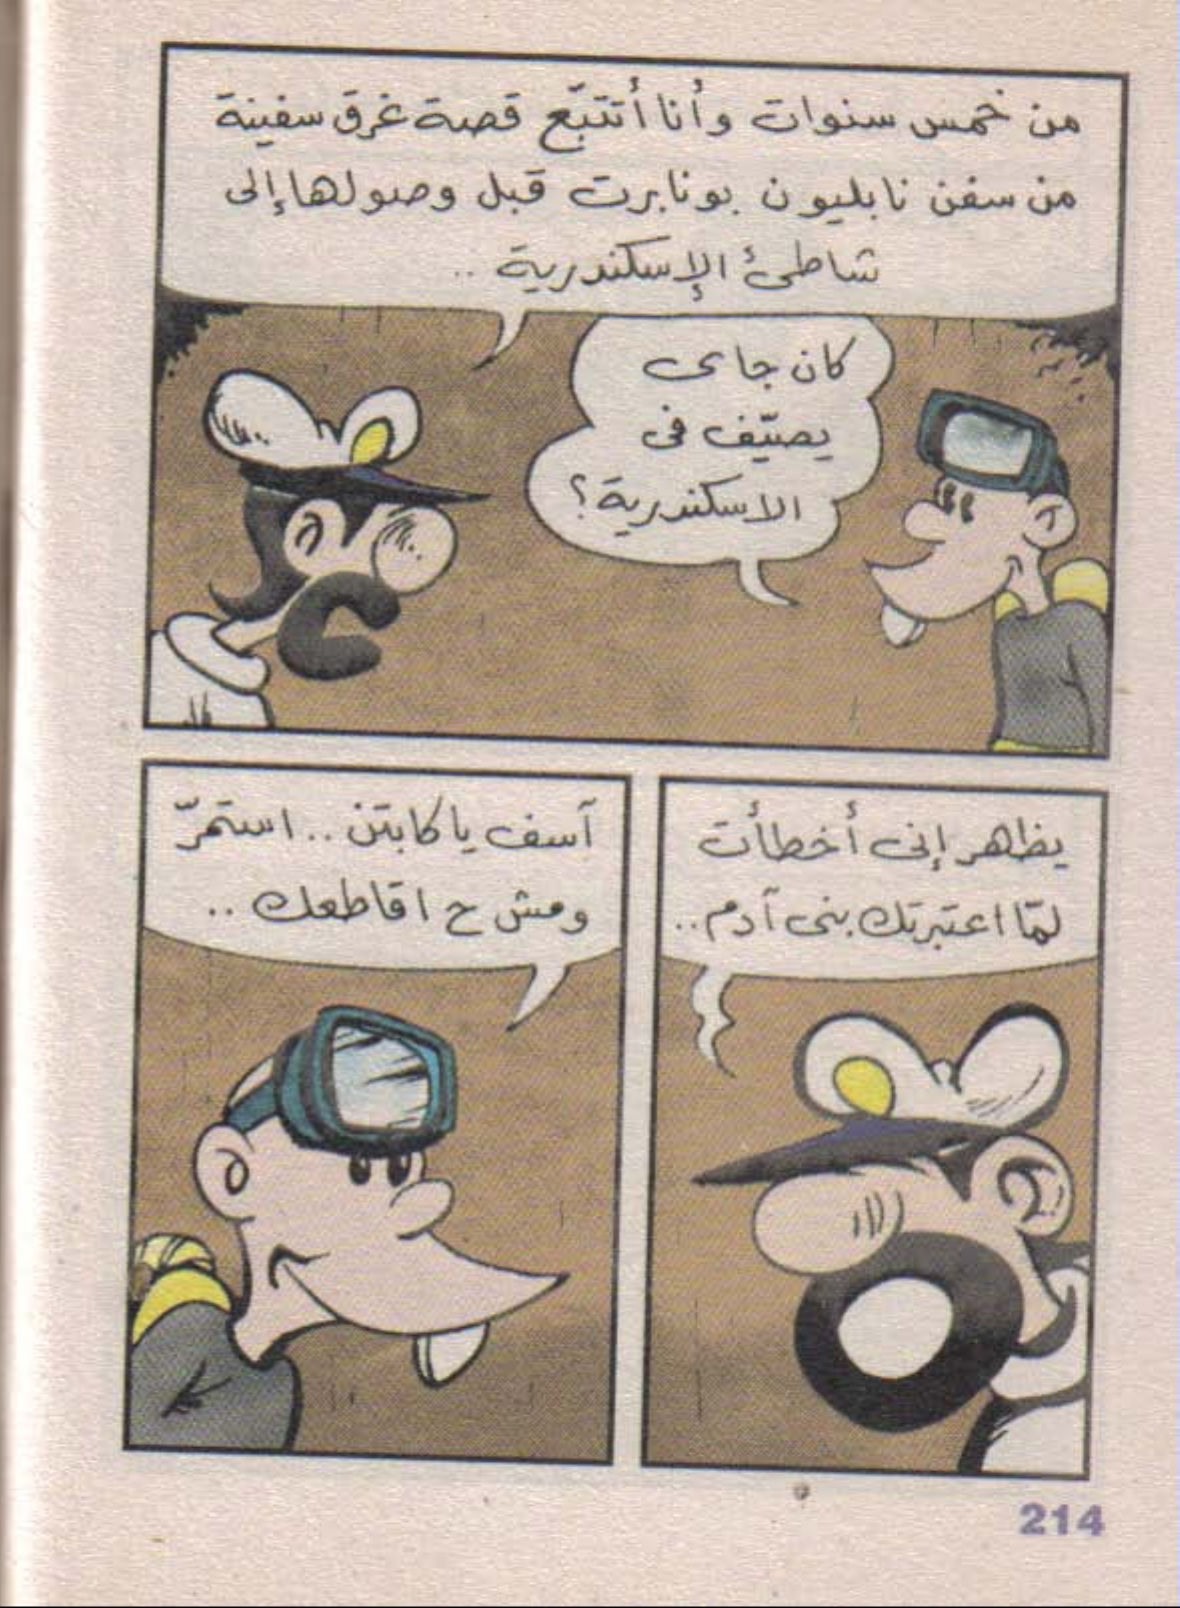 من خمس سنوات وأنا أتتبّع قصة غرق سفينة
من سفن نابليون بونابرت قبل وصولها إلى
شاطئ الإسكندرية ..
كان جاى
يصيّف فى
الاسكندرية؟
يظهر إنى أخطأت
لمّا اعتبرتك بنى آدم..
آسف يا كابتن .. استمرّ
ومش ح اقاطعك ..
214